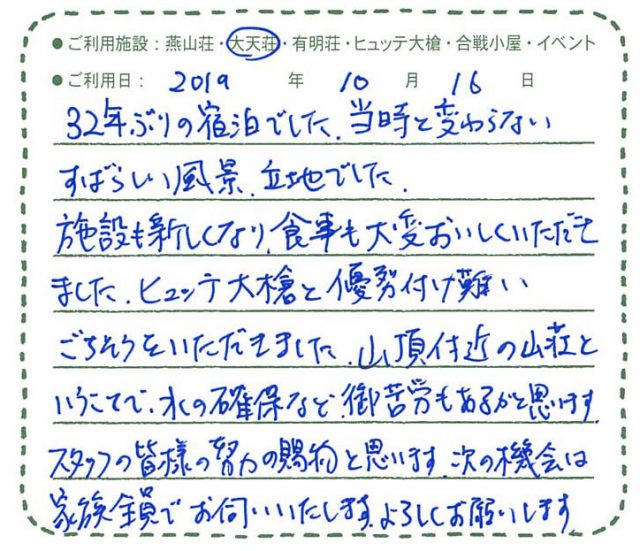 ●ご利用施設：燕山荘・大天荘・有明荘・ヒュッテ大槍・合戦小屋・イベント
●ご利用日： 2019 年 10 月 16 日
32年ぶりの宿泊でした、当時と変わらない
すばらしい風景、立地でした、
施設も新しくなり、食事も大変おいしくいただき
ました、ヒュッテ大槍と優劣付け難い
ごちそうをいただきました、山頂付近の山荘と
いうことで、水の確保など、御苦労もあるかと思います、
スタッフの皆様の努力の賜物と思います、次の機会は
家族全員でお伺いいたします、よろしくお願いします